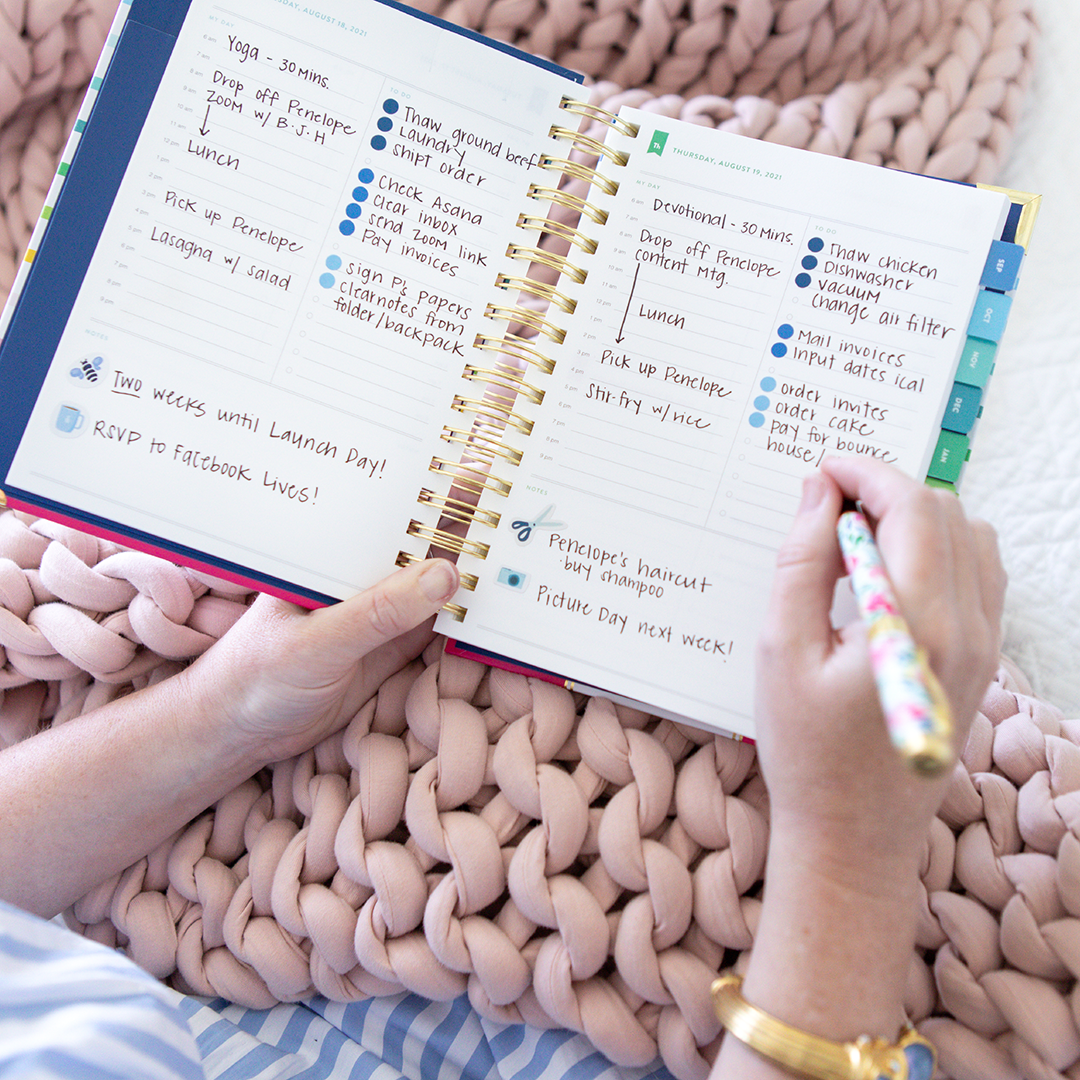 SDAY, AUGUST 18, 2021
MY DAY
Yoga - 30 Mins.
Drop off Penelope
Zoom w/ B.J.H
Lunch
Pick up Penelope
Lasagna w/ salad
TO DO
Thaw ground beef
Laundry
Shipt order
Check Asana
Clear inbox
send zoom link
Pay invoices
sign P's papers
Clearnotes from
folder/backpack
NOTES
Two weeks until Launch Day!
RSVP to Facebook Lives!
Th
THURSDAY, AUGUST 19, 2021
MY DAY
Devotional - 30 Mins.
Drop off Penelope
content Mtg.
Lunch
Pick up Penelope
Stir-fry w/rice
TO DO
Thaw chicken
Dishwasher
vacuum
change air filter
Mail invoices
Input dates ical
order invites
order cake
pay for bounce
house/
NOTES
Penelope's haircut
·buy shampoo
Picture Day next week!
SEP
OCT
NOV
DEC
JAN